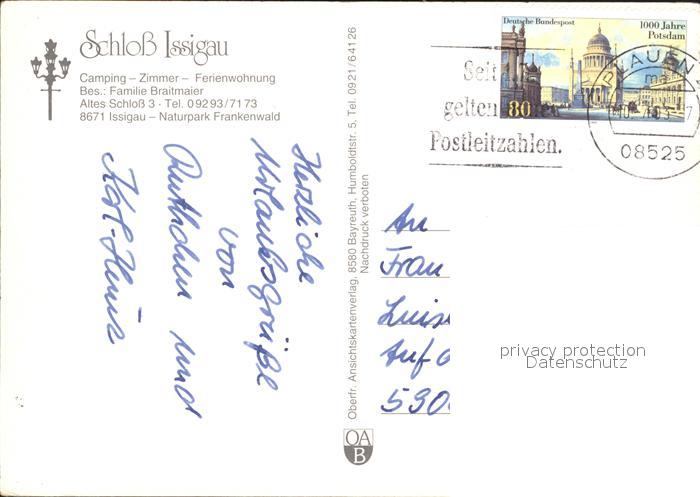 Schloß Issigau
Camping – Zimmer – Ferienwohnung
Bes.: Familie Braitmaier
Altes Schloß 3 · Tel. 09293/7173
8671 Issigau – Naturpark Frankenwald
Herzliche
Urlaubsgrüße
von
Ruthchen und
Karl-Heinz
Oberfr. Ansichtskartenverlag, 8580 Bayreuth, Humboldtstr. 5, Tel. 0921/64126
Nachdruck verboten
OA
B
Deutsche Bundespost
1000 Jahre
Potsdam
80
Seit
gelten
Postleitzahlen.
PLAUEN
08525
An
Frau
Luise
Auf d
530
privacy protection
Datenschutz